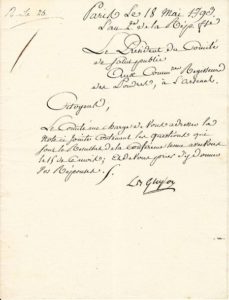 Paris Le 18 Mai 1793.
L'an 2e de la Rép.
Le Président du Comité
de Salut public
Aux Régisseurs
des Poudres, à L'Arsenal.
Citoyens,
Le Comité me charge de Vous adresser la
Note ci jointe contenant les questions qui
sont le Résultat de la Conférence tenue avec Vous
le 15 de ce mois; et de Vous prier d'y donner
Vos Réponses.